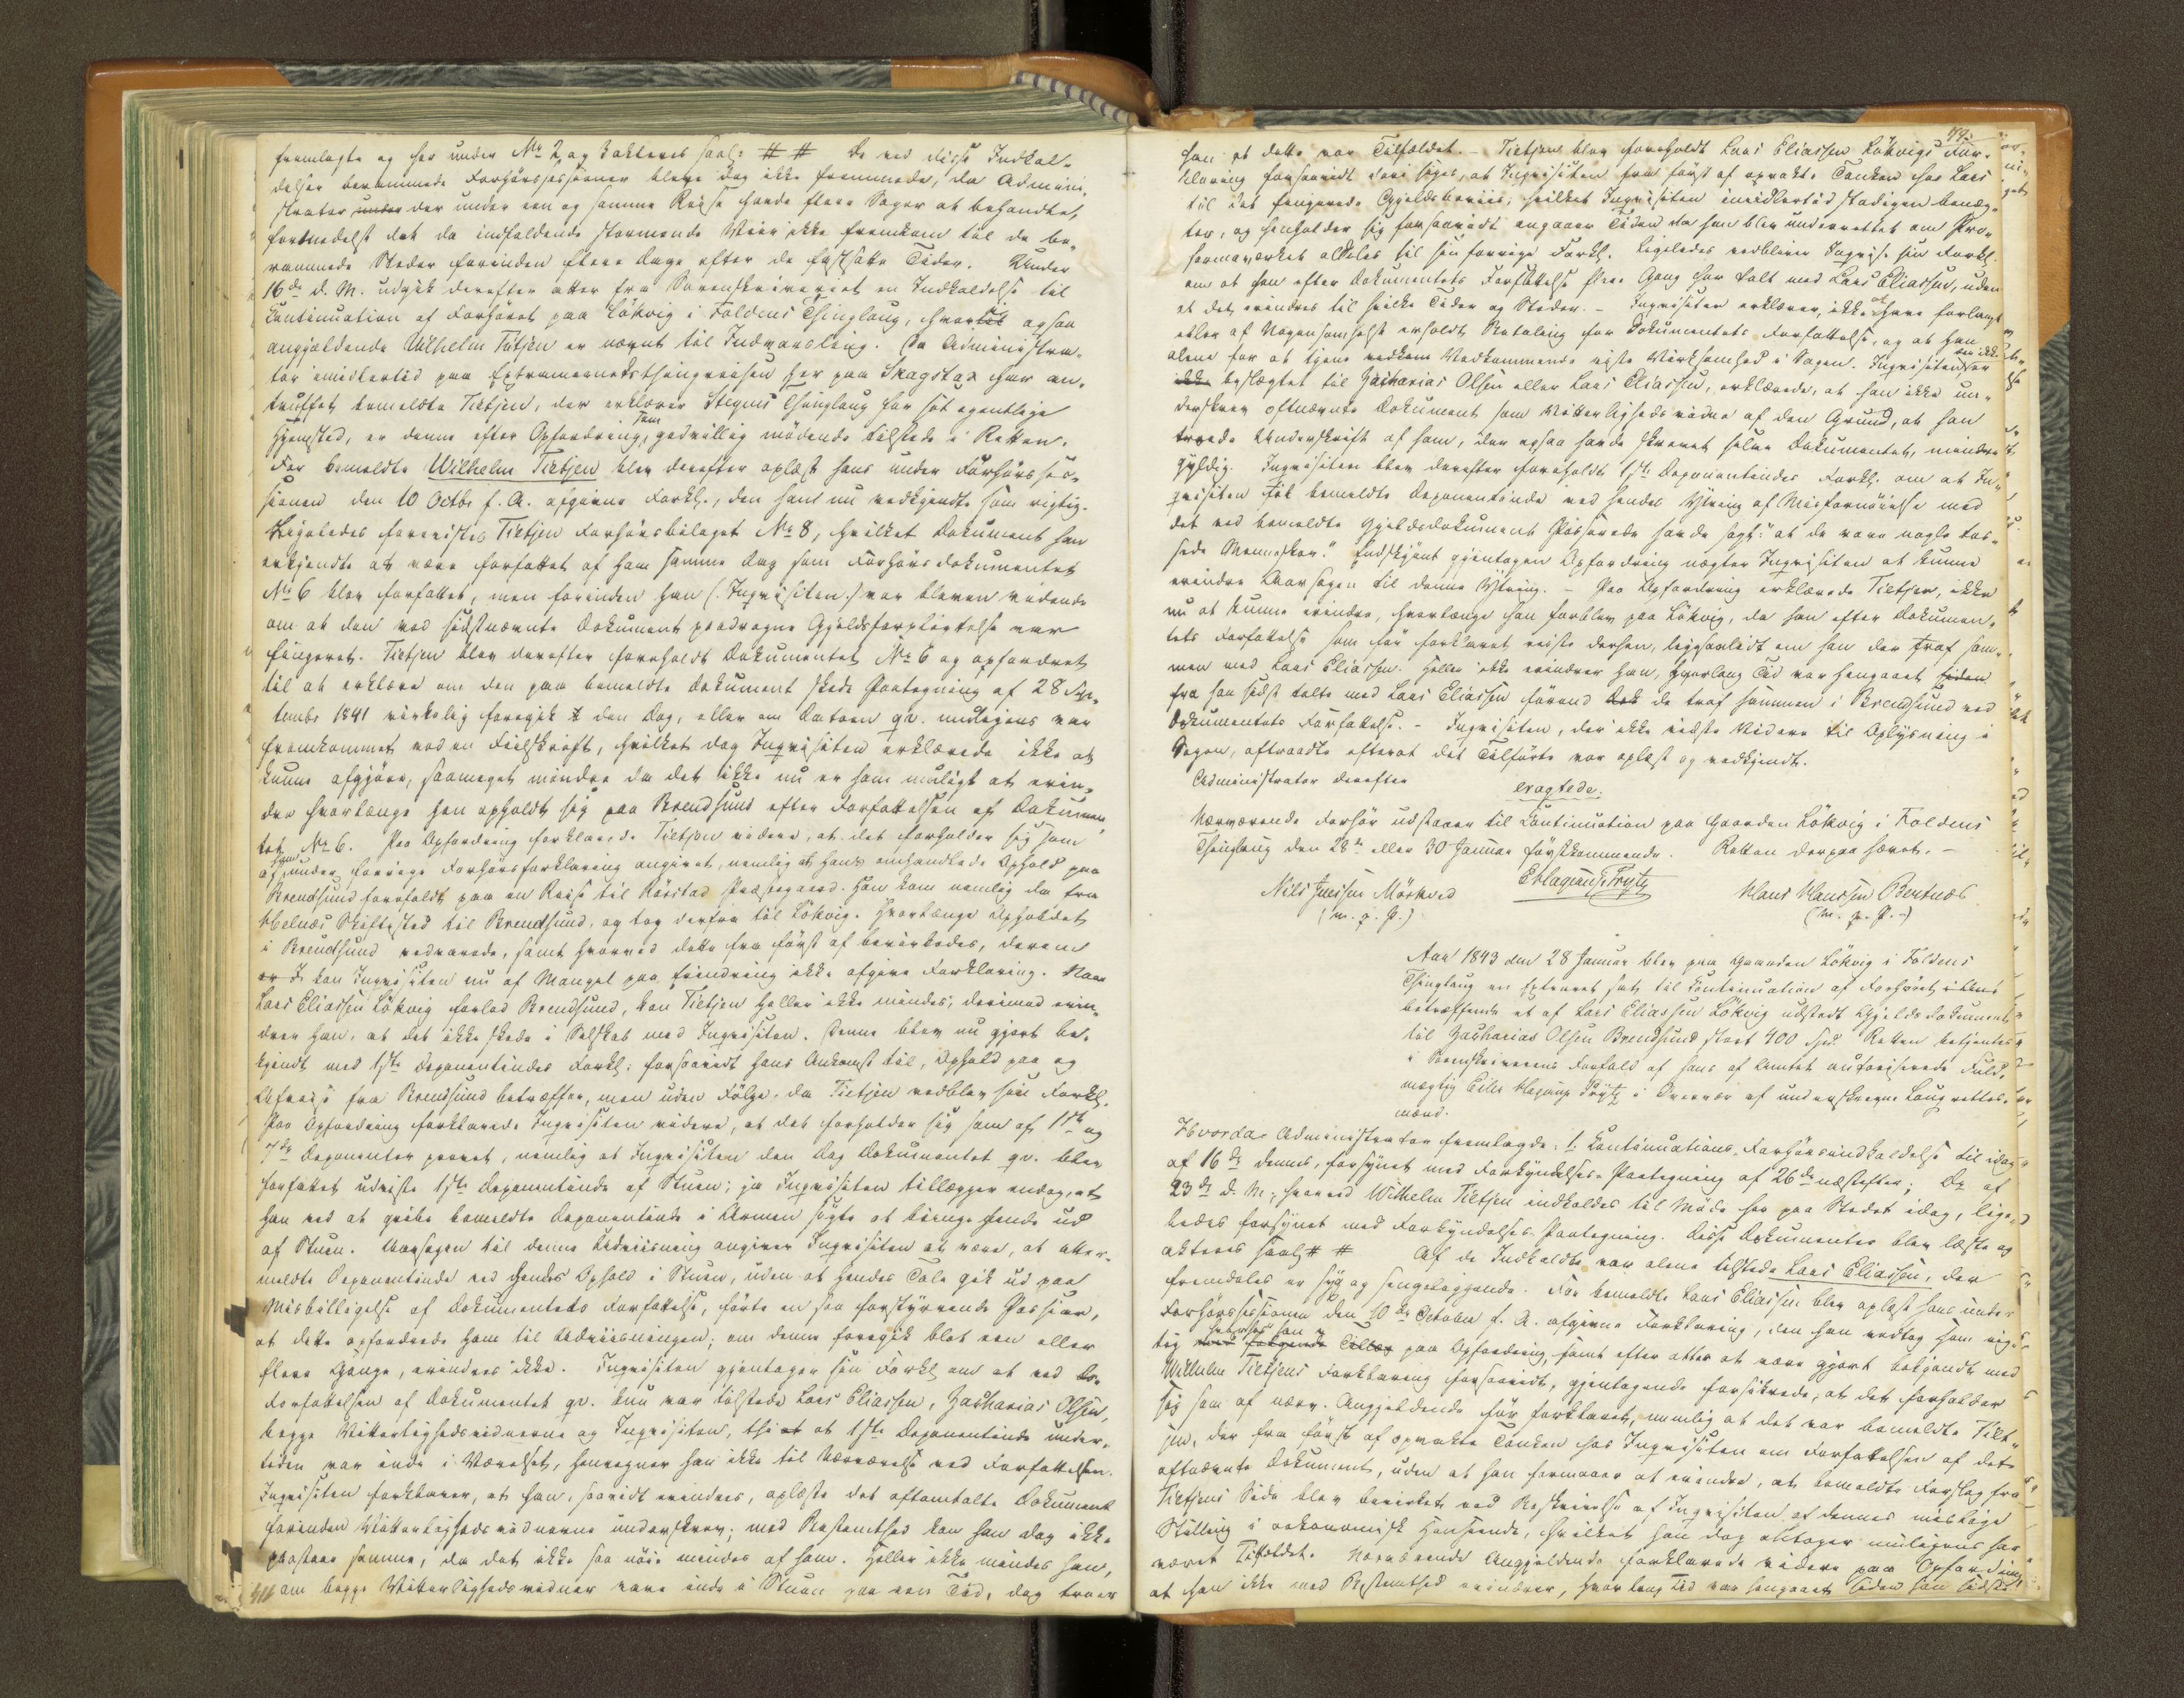 fremlagte og her under No 2 og 3 akteres saal: # # De ved disse Indkal-
delser berammede Forhørssessioner bleve dog ikke fremmede, da Admini-
strator under der under een og samme Reise havde flere Sager at behandle,
formedelst det da indfaldende stormende Veir ikke fremkom til de be-
rammede Steder forinden flere Dage efter de fastsatte Tider. Under
16de d. M. udgik derefter atter fra Sorenskriveriet en Indkaldelse til
Continuation af Forhøret paa Løkvig i Foldens Thinglaug, hvortil ogsaa
angjældende Wilhelm Tietjen er nævnt til Indvarsling. Da Administra-
tor imidlertid paa Extrameenedsthingreisen her paa Skagstad har an-
truffet bemeldte Tietjen, der erklærer Stegens Thinglaug for sit egentlige
Hjemsted, er denne efter Opfordring, som godvillig mødende tilstede i Retten.
For bemeldte Wilhelm Tietjen blev derefter oplæst hans under Forhørsses-
sionen den 10 Octbr f. A. afgivne Forkl., den hans nu vedkjendte som rigtig.
Ligeledes forevistes Tietjen Forhørsbilaget No 8, hvilket Dokument han
erkjendte at være forfattet af ham samme Dag som Forhørsdokumentet
No 6 blev forfattet, men forinden han (: Inqvisiten :) var bleven vidende
om at den ved sidstnævnte Dokument paadragne Gjældsforpligtelse var
fingeret. Tietjen blev derefter foreholdt Dokumentet No 6 og opfordret
til at erklære om den paa bemeldte Dokument skede Paategning af 28 Sep-
tembr 1841 virkelig foregik den Dag, eller om Datoen qv. muligens var
fremkommet ved en Feilskrift, hvilket dog Inqvisiten erklærede ikke at
kunne afgjøre, saameget mindre da det ikke nu er ham muligt at erin-
dre hvorlænge han opholdt sig paa Brendsund efter Forfattelsen af Dokumen-
tet No 6. Paa Opfordring forklarede Tietjen videre, at det forholder sig som
af ham under forrige Forhørsforklaring angivet, nemlig at hans omhandlede Ophold paa
Brendsund forefaldt paa en Reise til Rørstad Præstegaard. Han kom nemlig da fra
Helnæs Skiftested til Brendsund, og tog derfra til Løkvig. Hvorlænge Opholdet
i Brendsund vedvarede, samt hvorved dette fra først af bevirkedes, derom
kan Inqvisiten nu af Mangel paa Erindring ikke afgive Forklaring. Naar
Lars Eliassen Løkvig forlod Brendsund, kan Tietjen heller ikke mindes, derimod erin-
drer han, at det ikke skede i Selskab med Inqvisiten. Denne blev nu gjort be-
kjendt med 1ste Deponentindes Forkl: forsaavidt hans Ankomst til, Ophold paa og
Afreise fra Brendsund betræffer, men uden Følge, da Tietjen vedblev sin Forkl.
Paa Opfordring forklarede Inqvisiten videre, at det forholder sig som af 1ste og
7de Deponenter provet, nemlig at Inqvisiten den Dag Dokumentet qv. blev
forfattet udviste 1ste Deponentinde af Stuen; ja Inqvisiten tillægger endog, at
han ved at gribe bemeldte Deponentinde i Armen søgte at bringe hende ud
af Stuen. Aarsagen til denne Udviisning angiver Inqvisiten at være, at atter-
meldte Deponentinde ved hendes Ophold i Stuen, uden at hendes Tale gik ud paa
Misbilligelse af Dokumentets Forfattelse, førte en saa forstyrrende Passiar,
at dette opfordrede ham til Udviisningen; om denne foregik blot een eller
flere Gange, erindres ikke. Inqvisiten gjentager sin Forkl. om at ved
Forfattelsen af Dokumentet qv. kun var tilstede Lars Eliassen, Zacharias Olsen,
begge Vitterlighedsvidnerne og Inqvisiten, thi at 1ste Deponentinde under-
tiden var inde i Værelset, henregner han ikke til Nærværelse ved Forfattelsen.
Inqvisiten forklarer, at han, saavidt erindres, oplæste det oftomtalte Dokument
forinden Vitterlighedsvidnerne underskrev; med Bestemthed kan han dog ikke
paastaae samme, da det ikke saa nøie mindes af ham. Heller ikke mindes han,
om begge Vitterlighedsvidner vare inde i Stuen paa een Tid, dog troer
79.
han at dette var Tilfældet. - Tietjen blev foreholdt Lars Eliassen Løkvigs For-
klaring forsaavidt deri siges, at Inqvisiten fra først af opvakte Tanken hos Lars
til det fingerede Gjældsbeviis, hvilket Inqvisiten imidlertid stadigen benæg-
ter, og henholder sig forsaavidt angaaer Tiden da han blev underrettet om Pro-
formaværket aldeles til sin forrige Forkl. Ligeledes vedbliver Inqvis. sin Forkl.
om at han efter Dokumentets Forfattelse flere Gang har talt med Lars Eliassen, uden
at det erindres til hvilke Tider og Steder. - Inqvisiten erklærer, ikke at have forlangt
eller af Nogensomhelst erholdt Betaling for Dokumentets Forfattelse, og at han
alene for at tjene Vedkommende viste Virksomhed i Sagen. Inqvisiten, der ikke er
ikke beslægtet til Zacharias Olsen eller Lars Eliassen, erklærede, at han ikke un-
derskrev oftnævnte Dokument som Vitterlighedsvidne af den Grund, at han
troede Underskrift af ham, der ogsaa havde skrevet selve Dokumentet, mindre
gyldig. Inqvisiten blev derefter foreholdt 1ste Deponentindes Forkl. om at In-
qvisiten til bemeldte Deponentinde ved hendes Yttring af Misfornøielse med
det ved bemeldte Gjældsdokument Passerede havde sagt: "at de vare nogle tos-
sede Mennesker." Endskjønt gjentagen Opfordring nægter Inqvisiten at kunne
erindre Aarsagen til denne Yttring. - Paa Opfordring erklærede Tietjen, ikke
nu at kunne erindre, hvorlænge han forblev paa Løkvig, da han efter Dokumen-
tets Forfattelse som før forklaret reiste derhen, ligesaalidt om han der traf sam-
men med Lars Eliassen. Heller ikke erindrer han, hvorlang Tid var hengaaet siden
fra han sidst talte med Lars Eliassen førend de traf sammen i Brendsund ved
Dokumentets Forfattelse. - Inqvisiten, der ikke vidste Videre til Oplysning i
Sagen, aftraadte efterat det Tilførte var oplæst og vedkjendt.
Administrator derefter
eragtede:
Nærværende Forhør udstaaer til Continuation paa Gaarden Løkvig i Foldens
Thinglaug den 28de eller 30 Januar førstkommende. Retten derpaa hævet. -
EHagerupPrytz
Nils Jensen Mørkved
(m. p. P.)
Hans Hanssen Bertnæs
(m. p. P.-)
Aar 1843 den 28 Januar blev paa Gaarden Løkvig i Foldens
Thinglaug en Extraret sat til Continuation af Forhøret
betræffende et af Lars Eliassen Løkvig udstedt Gjeldsdokument
til Zacharias Olsen Brendsund stort 400 Spd. Retten betjentes
i Sorenskriverens Forfald af hans af Amtet authoriserede Fuld-
mægtig Eiler Hagerup Prytz i Overvær af underskrevne Laugrettes-
mænd.
Hvorda Administrator fremlagde: 1. Continuations-Forhørsindkaldelse til idag
af 16de dennes, forsynet med Forkyndelses-Paategning af 26de næstefter; Do af
23de d. M., hvorved Wilhelm Tietjen indkaldes til Møde her paa Stedet idag, lige-
ledes forsynet med Forkyndelses-Paategning. Disse Dokumenter blev læste og
akteres saal # # Af de Indkaldte var alene tilstede Lars Eliassen, der
fremdeles er syg og sengeliggende. For bemeldte Lars Eliassen blev oplæst hans under
Forhørssessionen den 10de October f. A. afgivne Forklaring, den han vedtog som rig-
tig paa Opfordring, samt efter atter at være gjort bekjendt med
Wilhelm Tietjens Forklaring forsaavidt, gjentagende forsikrede, at det forholder
sig som af nærv. Angjældende før forklaret, nemlig at det var bemeldte Tiet-
jen, der fra først af opvakte Tanken hos Inqvisiten om Forfattelsen af det
oftnævnte Dokument, uden at han formaaer at erindre, at bemeldte Forslag fra
Tietjens Side blev bevirket ved Beskrivelse af Inqvisiten af dennes mislige
Stilling i oekonomisk Henseende, hvilket han dog antager muligens har
været Tilfældet. Nærværende Angjældende forklarede videre paa Opfordring
at han ikke med Bestemthed erindrer, hvor lang Tid var hengaaet siden han sidste